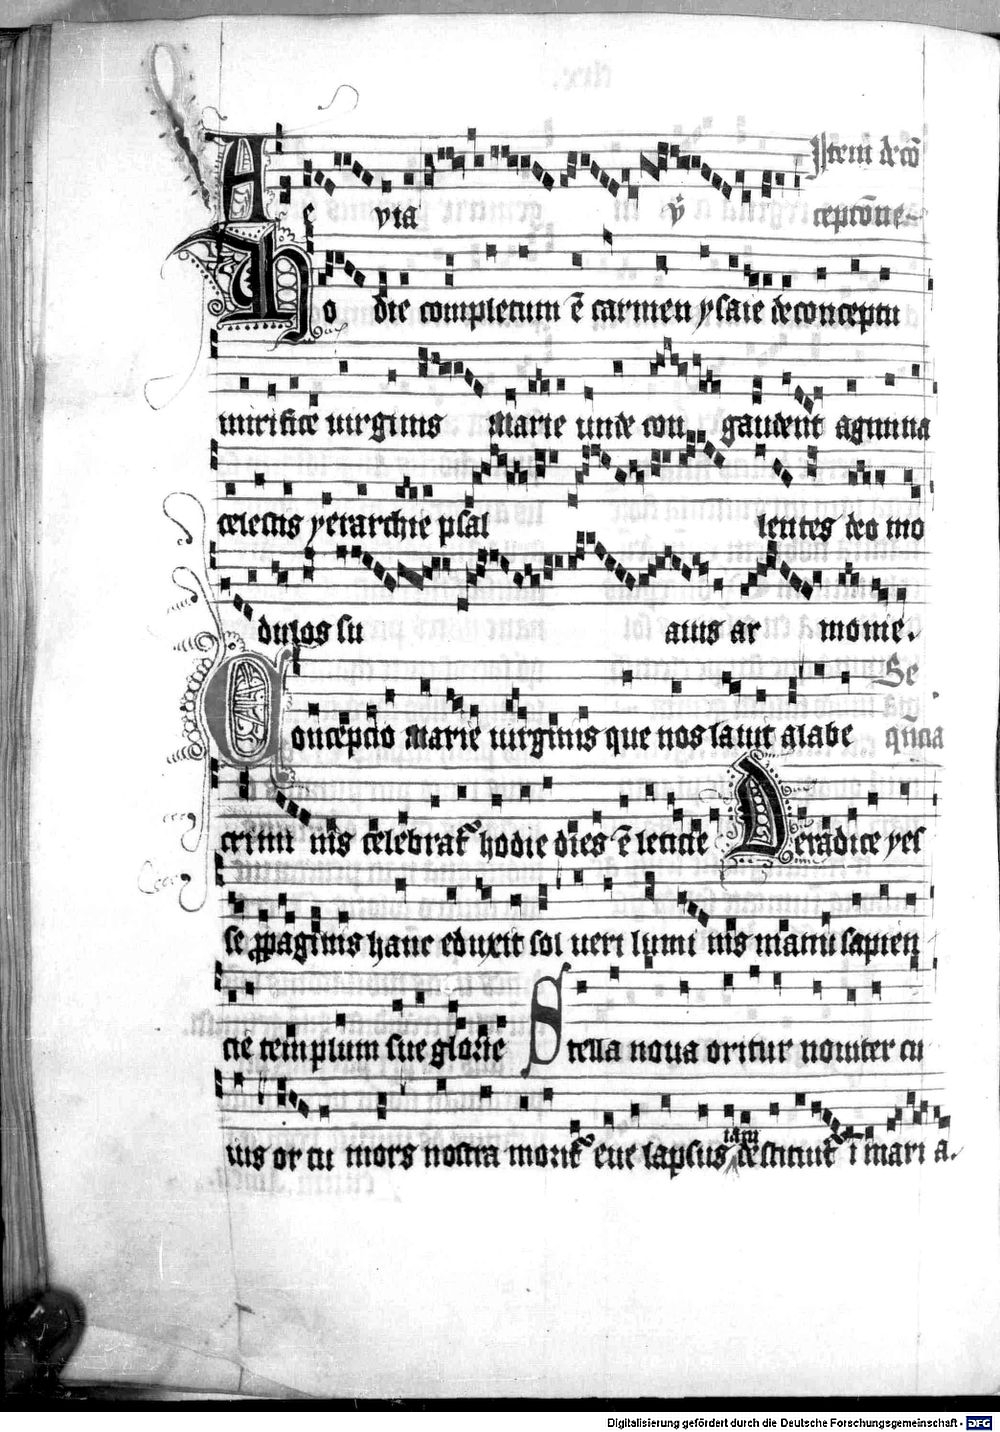 Item de cō
A e via v̄ ceptōne
Ho die completum ē carmen ysaie de conceptu
mirifice virginis Marie unde con gaudent agmina
celestis yerarchie psal lentes deo mo
dulos su avis ar monie.
Se
Concepcio Marie virginis que nos lavit a labe
crimi nis celebrat hodie dies ē leticie De radice yes
se propaginis hanc eduxit sol veri lumi nis manu sapien
cie templum sue glorie Stella nova oritur noviter cu
iam
ius or tu mors nostra morit eve lapsus destituit i mari a.
Digitalisierung gefördert durch die Deutsche Forschungsgemeinschaft - DFG